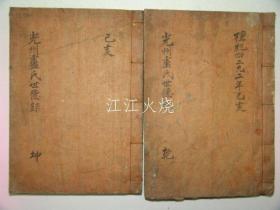 檀紀四二九二年己亥
光州盧氏世
乾
己亥
光州盧氏世德錄
坤
江江火烧